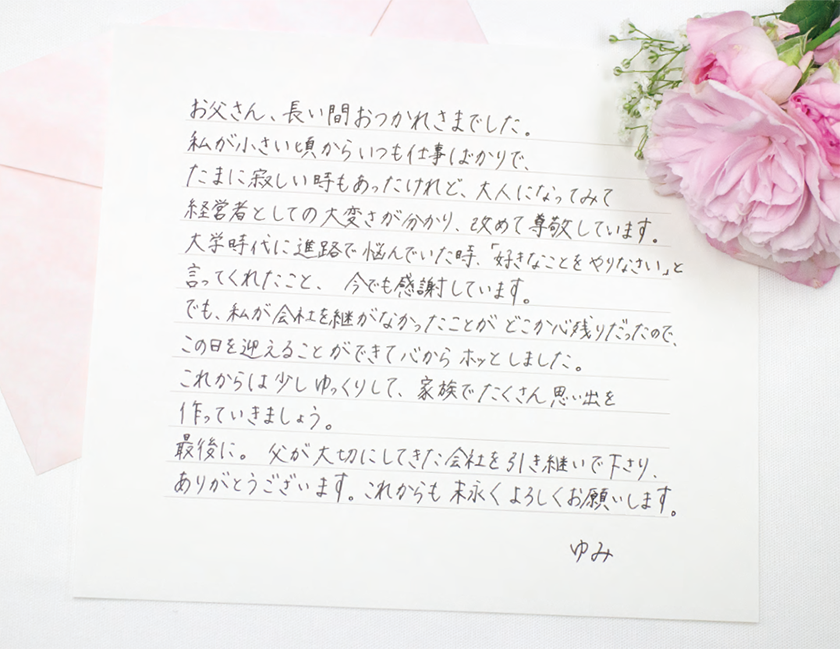 お父さん、長い間おつかれさまでした。
私が小さい頃からいつも仕事ばかりで、
たまに寂しい時もあったけれど、大人になってみて
経営者としての大変さが分かり、改めて尊敬しています。
大学時代に進路で悩んでいた時、「好きなことをやりなさい」と
言ってくれたこと、今でも感謝しています。
でも、私が会社を継がなかったことがどこか心残りだったので、
この日を迎えることができて心からホッとしました。
これからは少しゆっくりして、家族でたくさん思い出を
作っていきましょう。
最後に。父が大切にしてきた会社を引き継いで下さり、
ありがとうございます。これからも末永くよろしくお願いします。
ゆみ